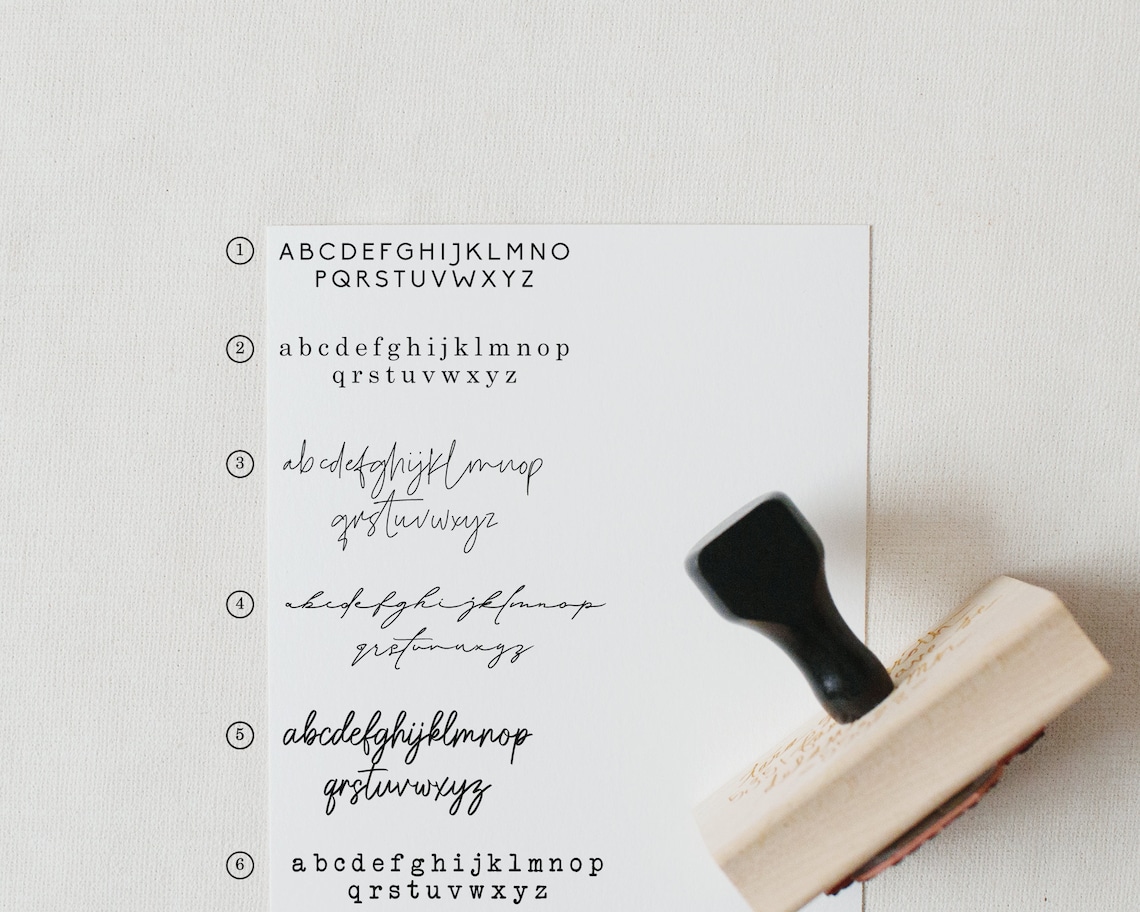 1 ABCDEFGHIJKLMNO
PQRSTUVWXYZ
2 abcdefghijklmnop
qrstuvwxyz
3 abcdefghijklmnop
qrstuvwxyz
4 abcdefghijklmnop
qrstuvwxyz
5 abcdefghijklmnop
qrstuvwxyz
6 abcdefghijklmnop
qrstuvwxyz